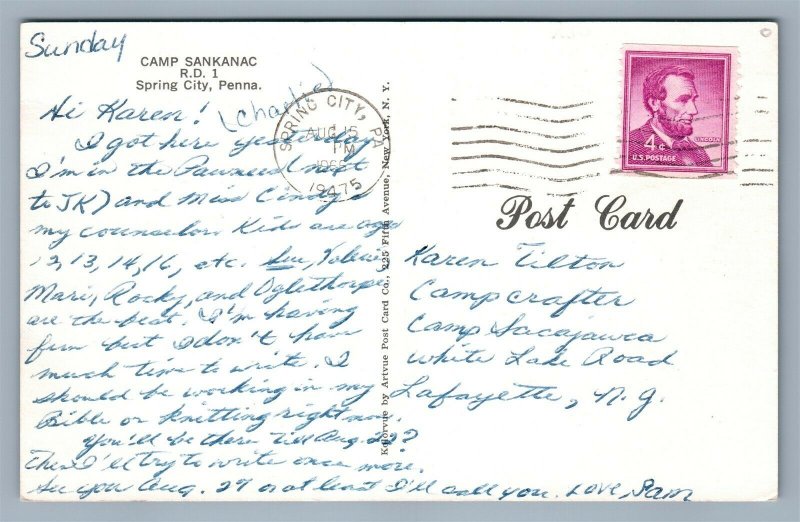 Sunday
CAMP SANKANAC
R.D. 1
Spring City, Penna.
Hi Karen! (Charlie)
I got here yesterday
I'm in the Pawnees (next
to JK) and Miss Cindy's
my counselor. Kids are ages
12, 13, 14, 16, etc. Sue, Valerie,
Mari, Rocky, and Oglethorpe
are the best. I'm having
fun but I don't have
much time to write. I
should be working in my
Bible or knitting right now.
You'll be there till Aug 22?
Then I'll try to write once more.
See you Aug. 29 or at least I'll call you. Love, Pam
SPRING CITY, PA
AUG 15
PM
19475
Kolorvue by Artvue Post Card Co., 225 Fifth Avenue, New York, N. Y.
LINCOLN
4¢
U.S. POSTAGE
Post Card
Karen Tilton
Camp crafter
Camp Sacajawea
White Lake Road
Lafayette, N.J.